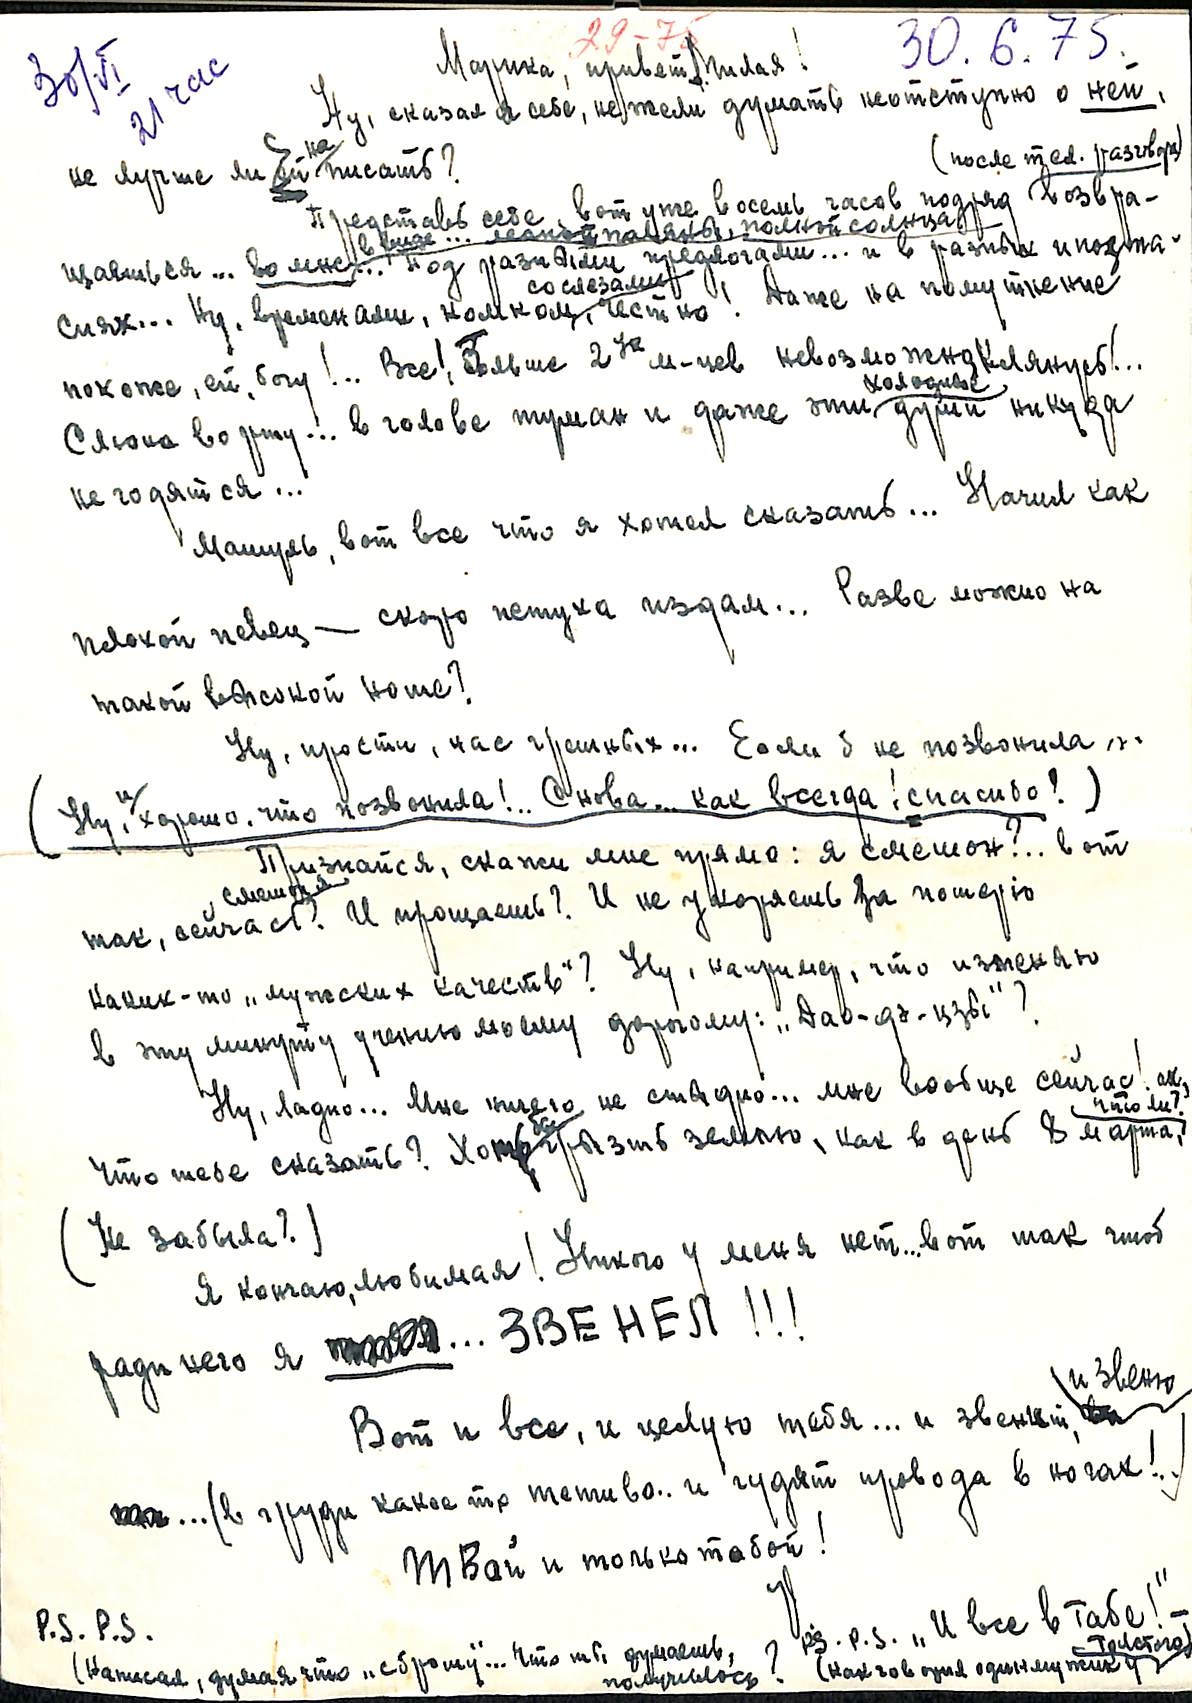 29-75
30.6.75.
30/VI
21 час
Марика, привет, милая!
Ну, сказал я себе, нежели думать неотступно о ней,
не лучше ли ей написать?
(после тел. разговора)
Представь себе, вот уже восемь часов подряд возвра-
щаешься... во мне... в виде... полной солнца
под разными предлогами... и в разных ипоста-
сях... Ну, временами, комком, со слезами, честно! Даже на помутнение
похоже, ей, богу!.. Все! Больше 2ух м-цев невозможно, клянусь!...
Слюна во рту... в голове туман и даже эти холодные души никуда
не годятся...
Машуль, вот все что я хотел сказать... Начил как
плохой певец — скоро петуха издам... Разве можно на
такой высокой ноте?
Ну, прости, нас грешных... Если б не позвонила...
(Ну, и хорошо, что позвонила!.. Снова... как всегда! спасибо!)
Признайся, скажи мне прямо: я смешон?.. вот
так, сейчас, смешон я? И прощаешь? И не укоряешь за потерю
каких-то „мужских качеств"? Ну, например, что изменяю
в эту минуту учению моему дорогому: „Дао-дэ-цзы"?
Ну, ладно... Мне ничего не стыдно... мне вообще сейчас! ах,
что тебе сказать? Хоть бы грызть землю, как в день 8 марта, что ли?
(Не забыла?)
Я кончаю, любимая! Никого у меня нет... вот так чтоб
ради него я ... ЗВЕНЕЛ!!!
Вот и все, и целую тебя... и звенит, и звеню
...(в груди какое то тетиво.. и гудят провода в ногах!..)
ТВай и только табой!
P.S. P.S.
(Написал, думая что „сброшу"... Что ты думаешь,
получилось?
P.S. P.S. „И все в Табе!"—
(как говорил один мужик у Толстого)